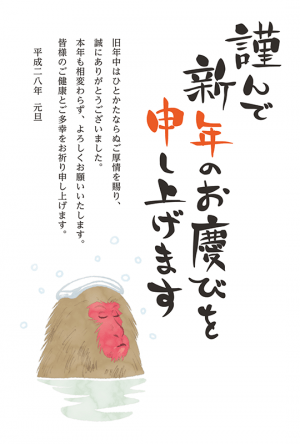 謹んで
新年のお慶びを
申し上げます
旧年中はひとかたならぬご厚情を賜り、
誠にありがとうございました。
本年も相変わらず、よろしくお願いいたします。
皆様のご健康とご多幸をお祈り申し上げます。
平成二八年 元旦